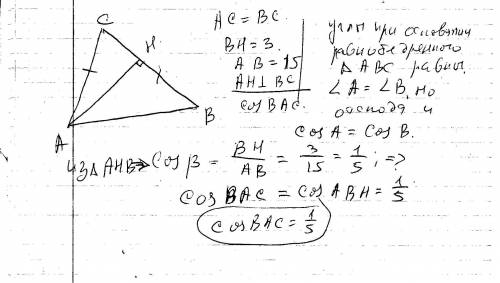 C
H
A
B
AC = BC.
BH = 3.
AB = 15
AH ⊥ BC
cos BAC.
углы при основании
равнобедренного
△ ABC равны.
∠A = ∠B, но
cos A = cos B.
из △ AHB => cos β = BH/AB = 3/15 = 1/5 ; =>
cos BAC = cos ABH = 1/5
cos BAC = 1/5